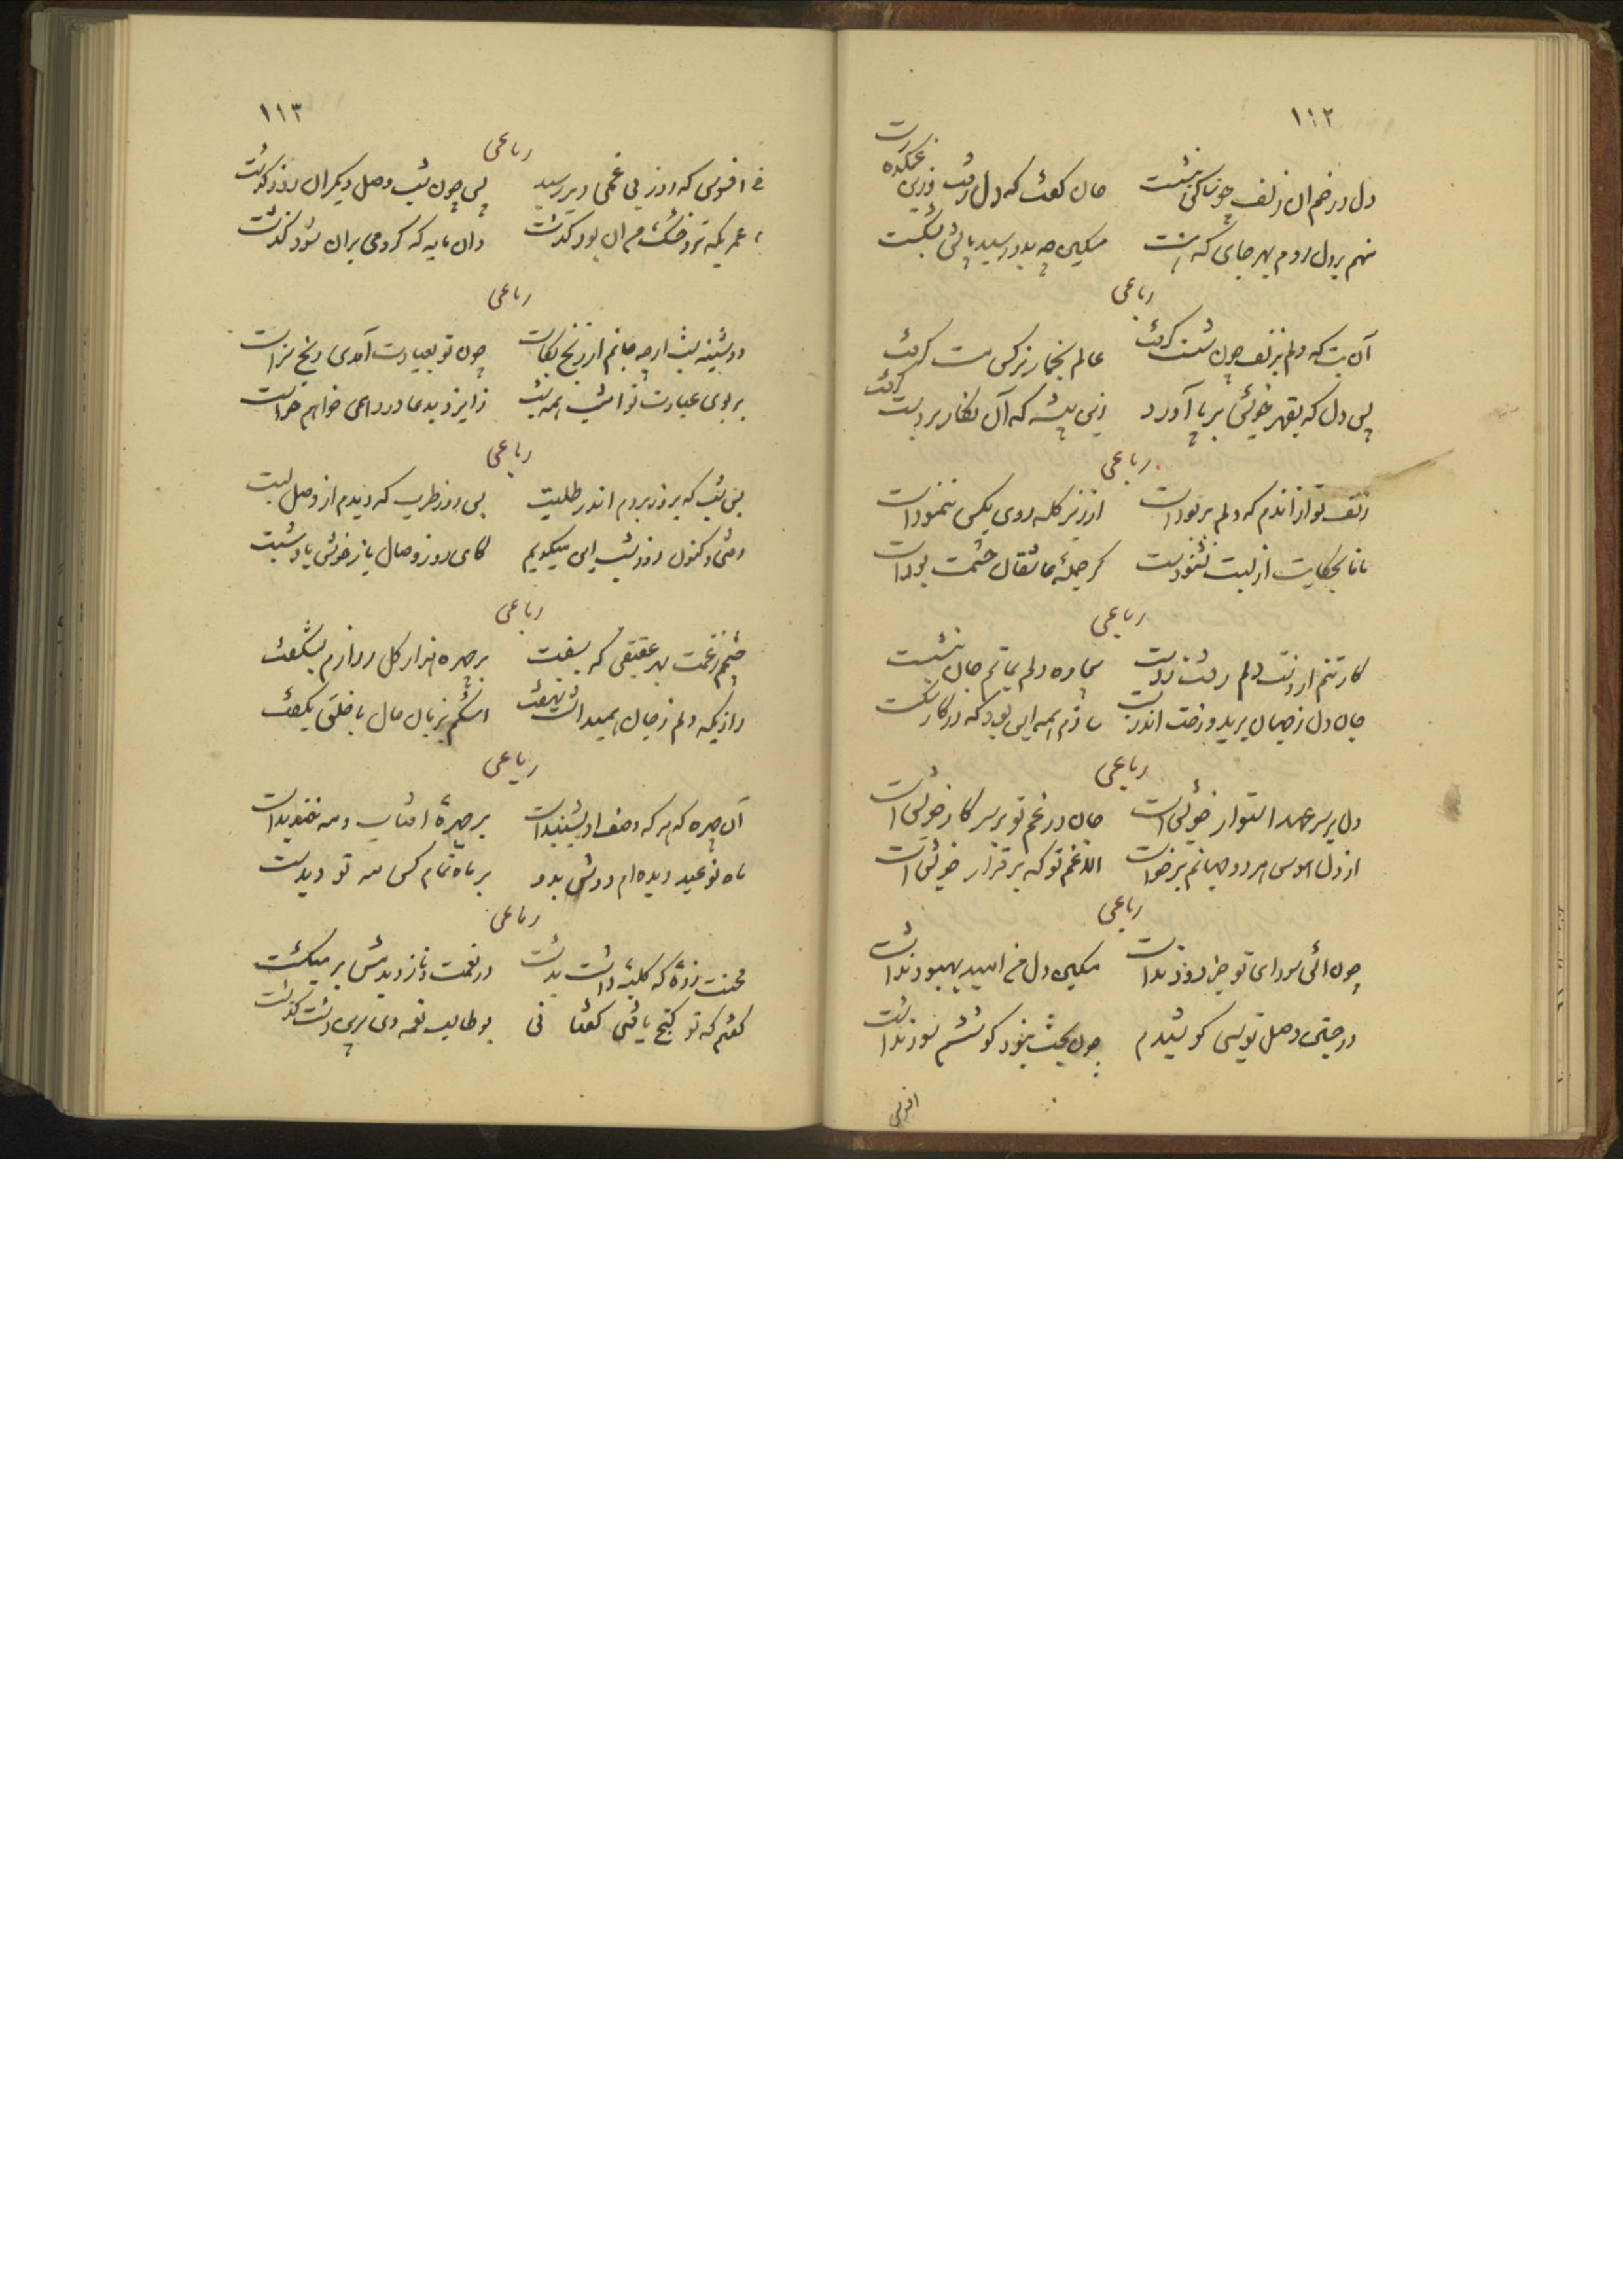 ۱۱۲
دل در خم آن زلف چو نباکی بنشست جان گفت که دل رفت وزین غمکده رست
منهم بر دل روم بهر جای که هست مسکین چه بدو رسید پایش بشکست
رباعی
آن بت که دلم بزلف چون شست گرفت عالم بخمار نرگس مست گرفت
پس دل که بقهر خویش بر پا آورد زین پیشه که آن نگار بر دست گرفت
رباعی
زلف تو از اندم که دلم بربودست از زیر کله روی بکس ننمودست
مانا بحکایت از لبت نشنودست کز جملهٔ عاشقان چشمت بودست
رباعی
کار تنم از دلم رفت ز دست بیچاره دلم بماتم جان بنشست
جان دل ز جهان برید و رخت اندر بست سازم همه این بود که در کار شکست
رباعی
دل بر سر عهد استوار خویش است جان در غم تو بر سر کار خویش است
از دل هوس هر دو جهانم برخواست الا غم تو که برقرار خویش است
رباعی
چون آتش سودای تو جز دود نداشت مسکین دل من امید بهبود نداشت
در جستن وصل تو بسی کوشیدم چون بخت نبود کوششم سود نداشت
افسوس
۱۱۳
رباعی
افسوس که روز بی غمی دیر رسید پس چون شب وصل دیگران زود گذشت
عمریکه ترو خشک من آن بود گذشت وان مایه که کردمی بران سود گذشت
رباعی
دوشینه شب ارچه جانم از رنج بکاست چون تو بعیادت آمدی رنج رواست
بر بوی عیادت تو امشب همه شب ز ایزد بدعا درد همی خواهم خواست
رباعی
بس شب که بروز بردم اندر طلبت بس روز طرب که دیدم از وصل لبت
رفتی و کنون روز و شب این میگویم کای روز وصال یار خوش باد شبت
رباعی
چشمم ز غمت بهر عقیقی که بسفت بر چهره هزار گل ز رازم بشکفت
رازیکه دلم ز جان همیداشت نهفت اشکم بزبان حال با خلق بگفت
رباعی
آن چهره که هر که وصف او بشنیدست بر چهرهٔ افتاب و مه خندیدست
ماه نو عید دیده‌ام دوش بدو بر ماه تمام کس مه نو دیدست
رباعی
محنت زدهٔ که کلبهٔ داشت بدشت در نعمت و ناز دیدمش بر میگشت
گفتم که تو گنج یافتی گفتا نی بو طالب نعمه دی برین دشت گذشت